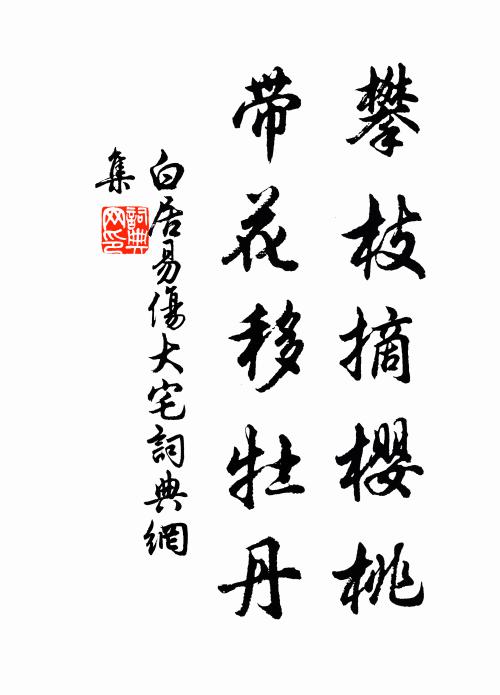 攀枝摘櫻桃
带花移牡丹
白居易傷大宅詞典網
集
詞典网印